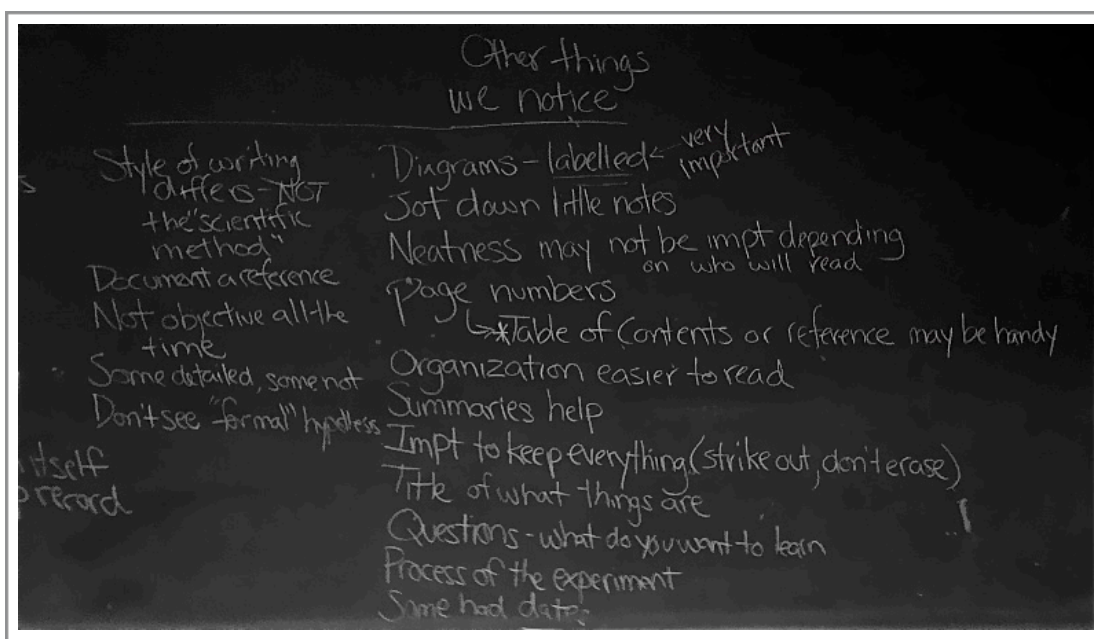 Other things
we notice
Style of writing
differs - NOT
the "scientific
method"
Document a reference
Not objective all the
time
Some detailed, some not
Don't see "formal"
itself
record
Diagrams - labelled ← very
important
Jot down little notes
Neatness may not be impt depending
on who will read
page numbers
↳ *Table of Contents or reference may be handy
Organization easier to read
Summaries help
Impt to keep everything (strike out, don't erase)
Title of what things are
Questions - what do you want to learn
Process of the experiment
Some had dates